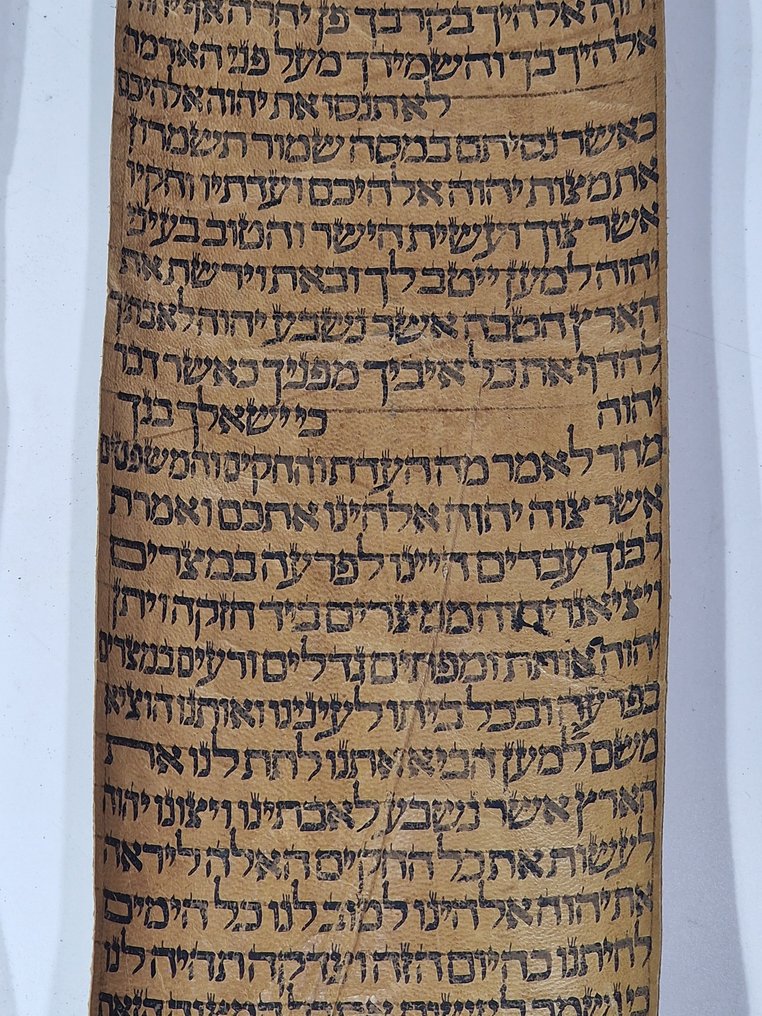 יהוה אלהיך בקרבך פן יחרה אף יהוה
אלהיך בך והשמידך מעל פני האדמה
לא תנסו את יהוה אלהיכם
כאשר נסיתם במסה שמור תשמרון
את מצות יהוה אלהיכם ועדתיו וחקיו
אשר צוך ועשית הישר והטוב בעיני
יהוה למען ייטב לך ובאת וירשת את
הארץ הטבה אשר נשבע יהוה לאבתיך
להדף את כל איביך מפניך כאשר דבר
יהוה כי ישאלך בנך
מחר לאמר מה העדת והחקים והמשפטים
אשר צוה יהוה אלהינו אתכם ואמרת
לבנך עבדים היינו לפרעה במצרים
ויציאנו יהוה ממצרים ביד חזקה ויתן
יהוה אותת ומפתים גדלים ורעים במצרים
בפרעה ובכל ביתו לעינינו ואותנו הוציא
משם למען הביא אתנו לתת לנו את
הארץ אשר נשבע לאבתינו ויצונו יהוה
לעשות את כל החקים האלה ליראה
את יהוה אלהינו לטוב לנו כל הימים
לחיתנו כהיום הזה וצדקה תהיה לנו
כי נשמר לעשות את כל המצוה הזאת